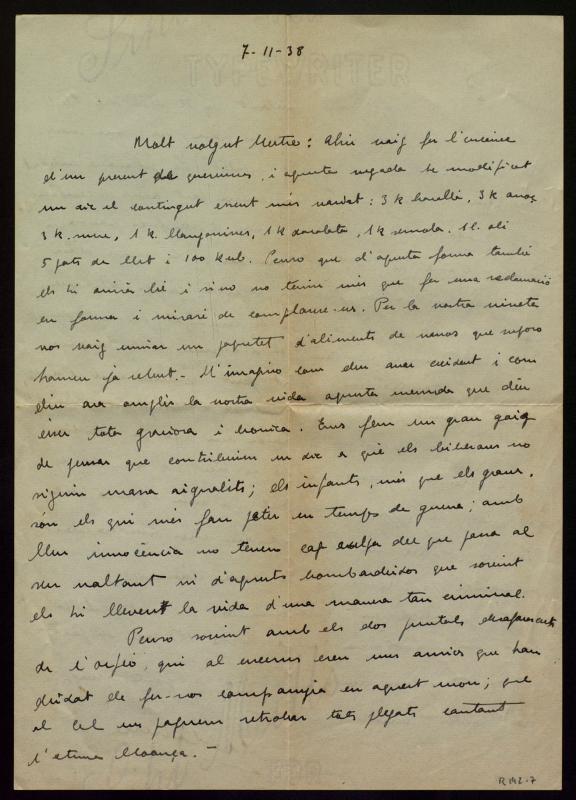 7-11-38
Molt volgut Mestre: Ahir vaig fer l'encàrrec
d'un present de queviures, i aquesta vegada he modificat
un xic el contingut essent més variat: 3 k. bacallà, 3 k arroç
3 k. sucre, 1 k. llangonices, 1 k xocolata, 1 k semola. 1 l. oli
5 pots de llet i 100 Kub. Penso que d'aquesta forma també
els hi anirà bé i si no no tenim més que fer una reclamació
en forma i miraré de complaure-us. Per la vostra nineta
vos vaig enviar un paquetet d'aliments de nenos que suposo
haureu ja rebut.- M'imagino com deu anar creixent i com
deu ara omplir la vostra vida aquesta menuda que deu
ésser tota graciosa i bonica. Ens fem un gran goig
de pensar que contribuim un xic a què els biberons no
siguin massa aigualits; els infants, més que els grans,
són els qui més fan patir en temps de guerra; amb
llur innocència no tenen cap culpa del que passa al
seu voltant ni d'aquests bombardeigs que sovint
els hi lleven la vida d'una manera tan criminal.
Penso sovint amb els dos puntals desapareguts
de l'Orfeó, qui al ensems eren uns amics que han
deixat de fer-nos companyia en aquest mon; que
al Cel ens poguem retrobar tots plegats cantant
l'eterna lloança.-
R 142-7
TYPEWRITER